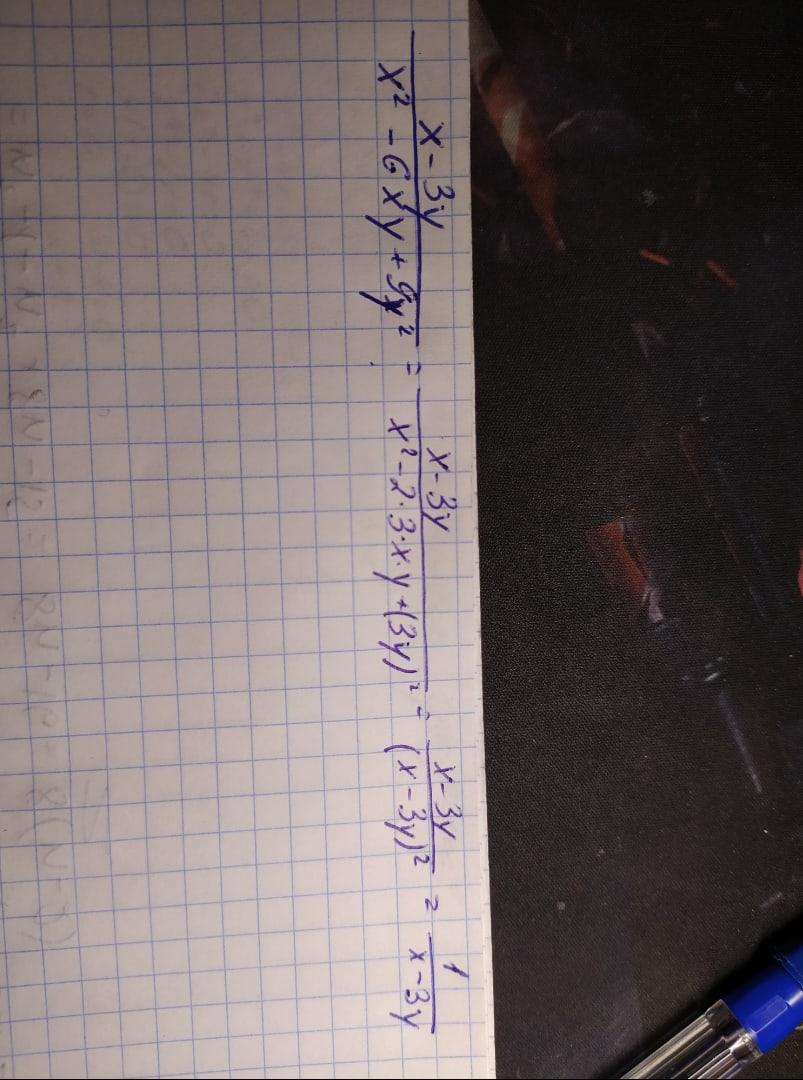 x-3y / x² - 6xy + 9y² = x-3y / x² - 2·3·x·y + (3y)² = x-3y / (x-3y)² = 1 / x-3y